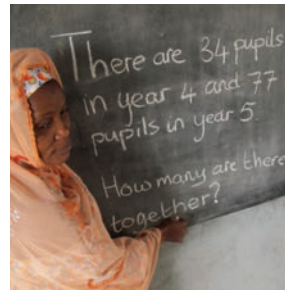 There are 34 pupils
in year 4 and 77
pupils in year 5.
How many are there
together?